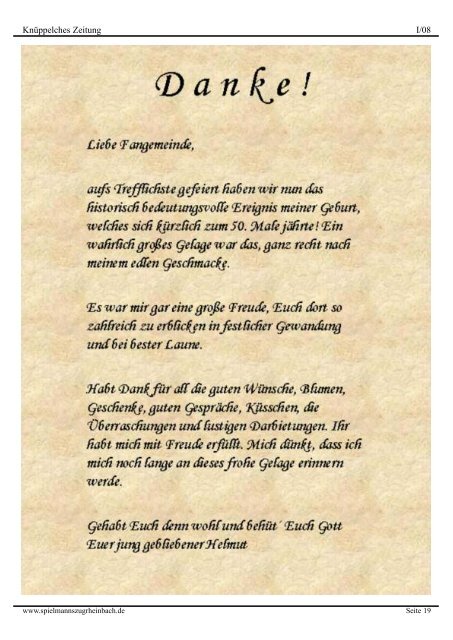 Knüppelches Zeitung I/08
Danke!
Liebe Fangemeinde,
aufs Trefflichste gefeiert haben wir nun das
historisch bedeutungsvolle Ereignis meiner Geburt,
welches sich kürzlich zum 50. Male jährte! Ein
wahrlich großes Gelage war das, ganz recht nach
meinem edlen Geschmacke.
Es war mir gar eine große Freude, Euch dort so
zahlreich zu erblicken in festlicher Gewandung
und bei bester Laune.
Habt Dank für all die guten Wünsche, Blumen,
Geschenke, guten Gespräche, Küsschen, die
Überraschungen und lustigen Darbietungen. Ihr
habt mich mit Freude erfüllt. Mich dünkt, dass ich
mich noch lange an dieses frohe Gelage erinnern
werde.
Gehabt Euch denn wohl und behüt´ Euch Gott
Euer jung gebliebener Helmut
www.spielmannszugrheinbach.de Seite 19